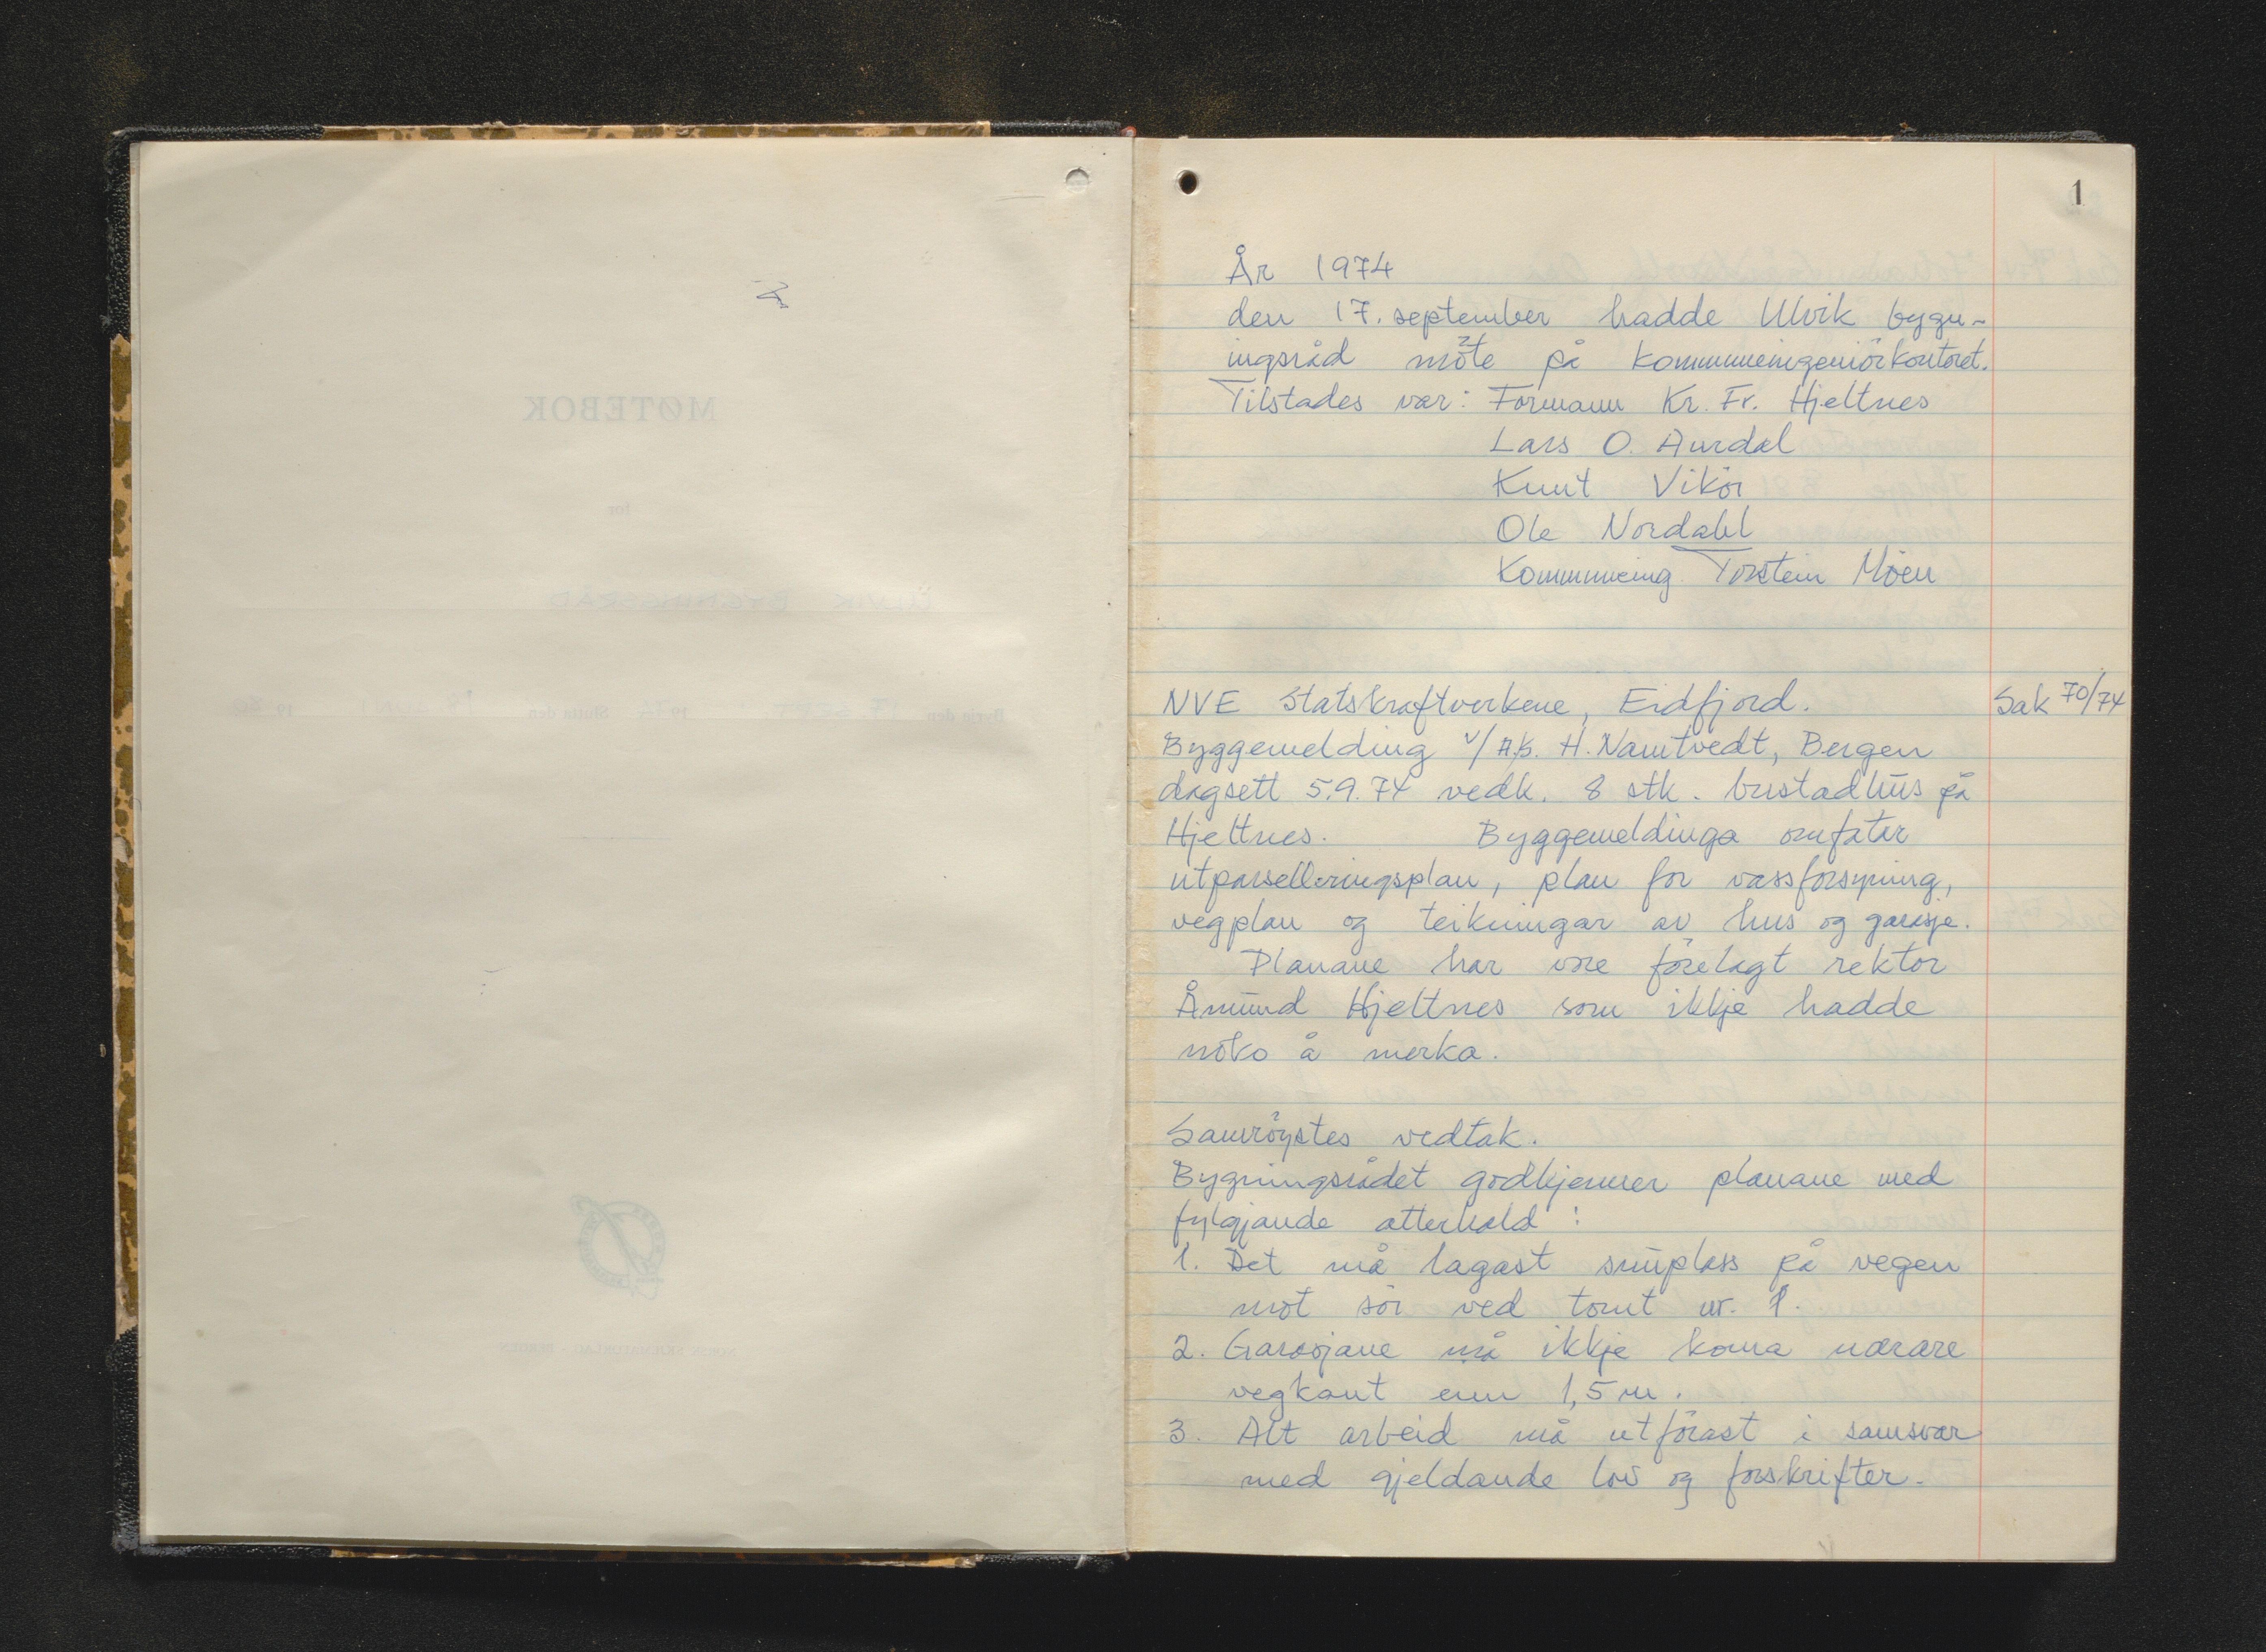 1
År 1974
den 17. september hadde Ulvik bygn-
ingsråd möte på kommuneingeniörkontoret.
Tilstades var: Formann Kr. Fr. Hjeltnes
Lars O. Aurdal
Knut Vikör
Ole Nordahl
Kommuneing. Torstein Möen
NVE Statskraftverkene, Eidfjord. Sak 70/74
Byggemelding v/A/S. H. Namtvedt, Bergen
dagsett 5.9.74 vedk. 8 stk. bustadhus på
Hjeltnes. Byggemeldinga omfatar
utparselleringsplan, plan for vassforsyning,
vegplan og teikningar av hus og garasje.
Planane har vore förelagt rektor
Åmund Hjeltnes som ikkje hadde
noko å merka.
Samröystes vedtak.
Bygningsrådet godkjenner planane med
fylgjande atterhald:
1. Det må lagast snuplass på vegen
mot sör ved tomt nr. 1.
2. Garasjane må ikkje koma nærare
vegkant enn 1,5 m.
3. Alt arbeid må utförast i samsvar
med gjeldande lov og forskrifter.